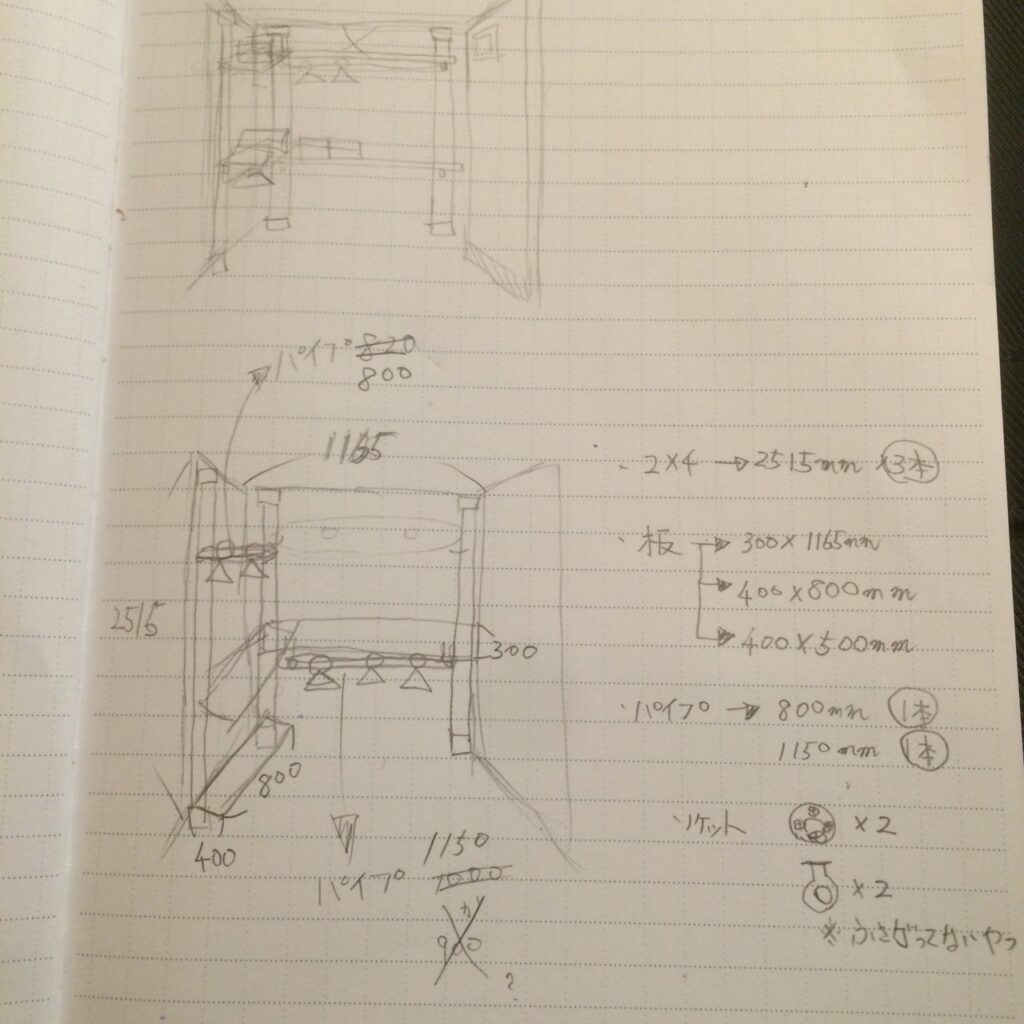 パイプ 820
800
1165
・2×4 → 2515mm ×3本
・板 → 300×1165mm
→ 400×800mm
→ 400×500mm
2515
300
・パイプ → 800mm 1本
1150mm 1本
800
ソケット ×2
400
1150
パイプ 1000
か
900
?
×2
※ふさがってないやつ